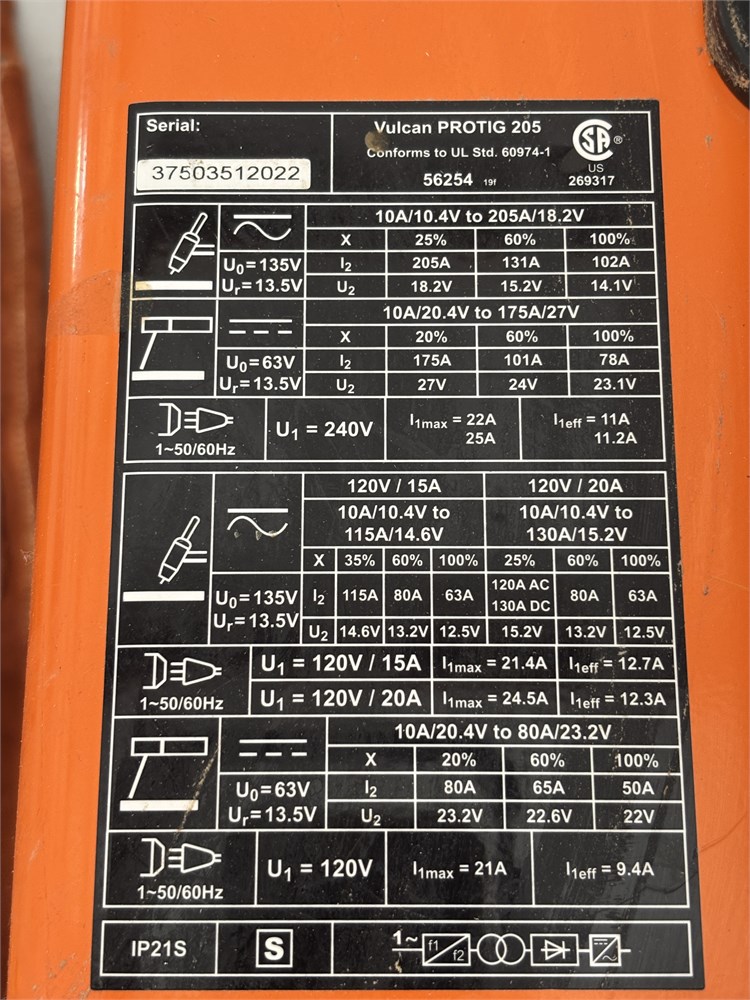 Serial:
37503512022
Vulcan PROTIG 205
Conforms to UL Std. 60974-1
56254 19f
SA ®
US
269317
10A/10.4V to 205A/18.2V
X 25% 60% 100%
U0=135V I2 205A 131A 102A
Ur=13.5V U2 18.2V 15.2V 14.1V
10A/20.4V to 175A/27V
X 20% 60% 100%
U0=63V I2 175A 101A 78A
Ur=13.5V U2 27V 24V 23.1V
1~50/60Hz
U1 = 240V
I1max = 22A
25A
I1eff = 11A
11.2A
120V / 15A 120V / 20A
10A/10.4V to
115A/14.6V
10A/10.4V to
130A/15.2V
X 35% 60% 100% 25% 60% 100%
U0=135V
Ur=13.5V
I2 115A 80A 63A 120A AC
130A DC 80A 63A
U2 14.6V 13.2V 12.5V 15.2V 13.2V 12.5V
1~50/60Hz
U1 = 120V / 15A I1max = 21.4A I1eff = 12.7A
U1 = 120V / 20A I1max = 24.5A I1eff = 12.3A
10A/20.4V to 80A/23.2V
X 20% 60% 100%
U0=63V I2 80A 65A 50A
Ur=13.5V U2 23.2V 22.6V 22V
1~50/60Hz
U1 = 120V I1max = 21A I1eff = 9.4A
IP21S S 1~ f1
f2